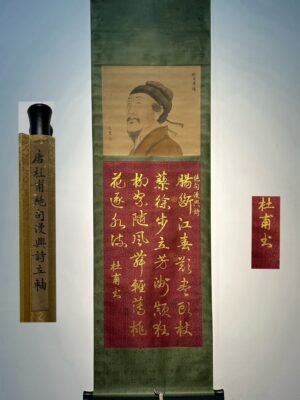 唐杜甫絶句漫興詩立軸
絶句漫興詩
腸斷江春欲盡頭杖
藜徐步立芳洲顛狂
柳絮隨風舞輕薄桃
花逐水流
杜甫書
杜甫書